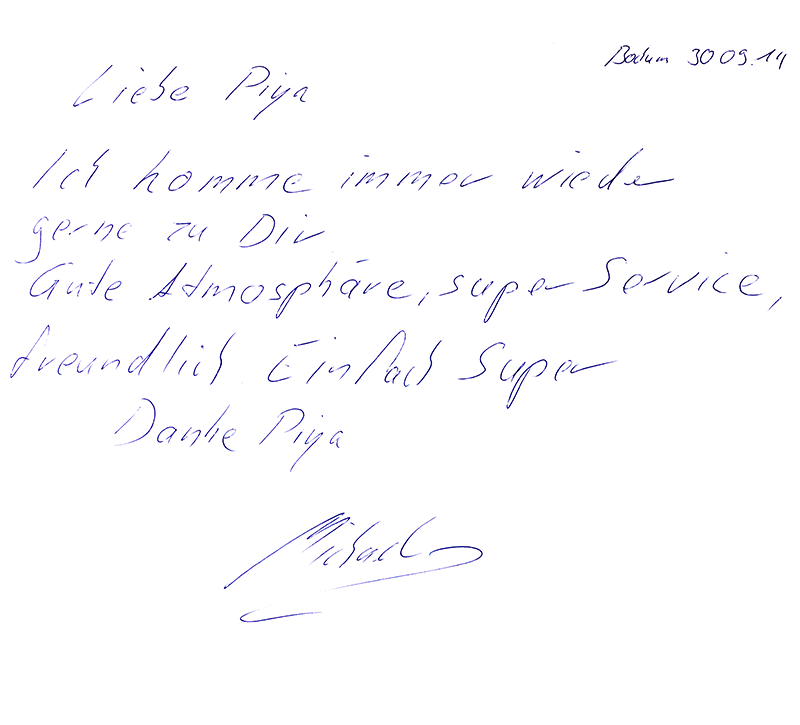 Bodum 30 09.14
Liebe Piya
Ich komme immer wieder
gerne zu Dir
Gute Atmosphäre, super Service,
freundlich Einfach Super
Danke Piya
Michael